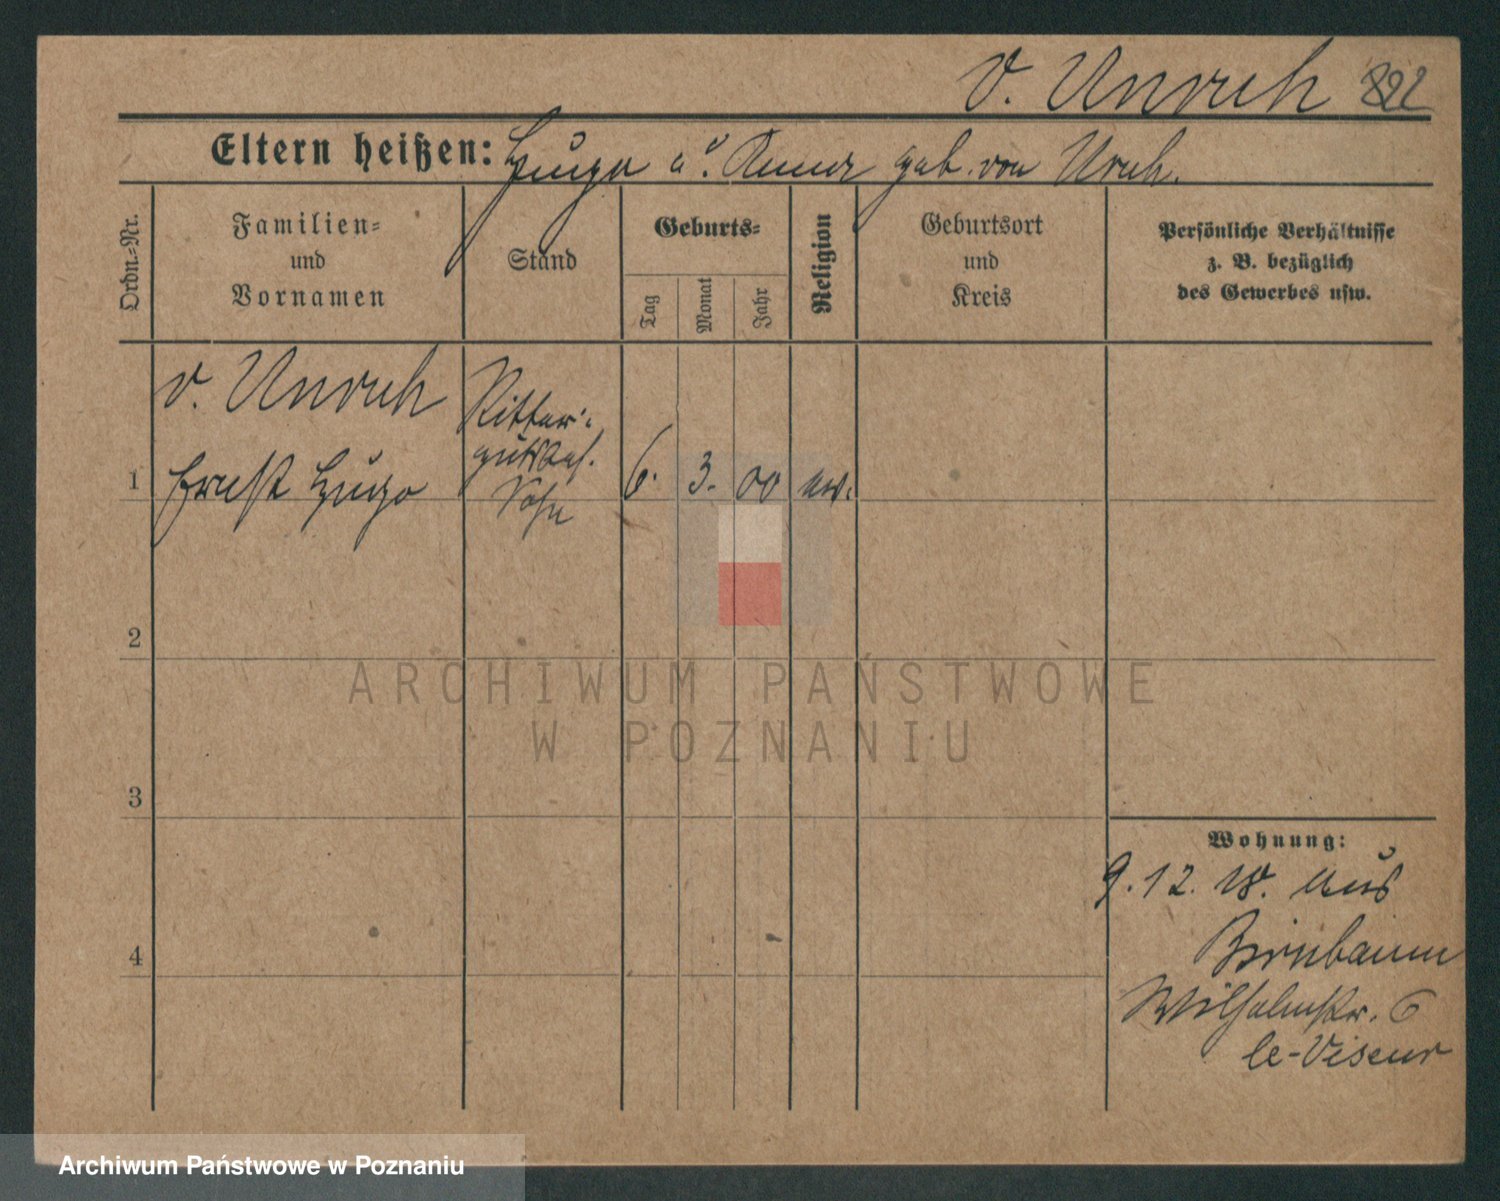 v. Unruh 822
Eltern heißen: Hugo u. Anna geb. von Unruh.
Ordn.-Nr.
Familien-
und
Vornamen
Stand
Geburts-
Tag
Monat
Jahr
Religion
Geburtsort
und
Kreis
Persönliche Verhältnisse
z. B. bezüglich
des Gewerbes usw.
v. Unruh
Ernst Hugo
Ritter-
gutsbes.
Sohn
1
6.
3.
00
ev.
2
3
4
ARCHIWUM PAŃSTWOWE
W POZNANIU
Wohnung:
9.12. 18. aus
Birnbaum
Wilhelmstr. 6
le-Viseur
Archiwum Państwowe w Poznaniu